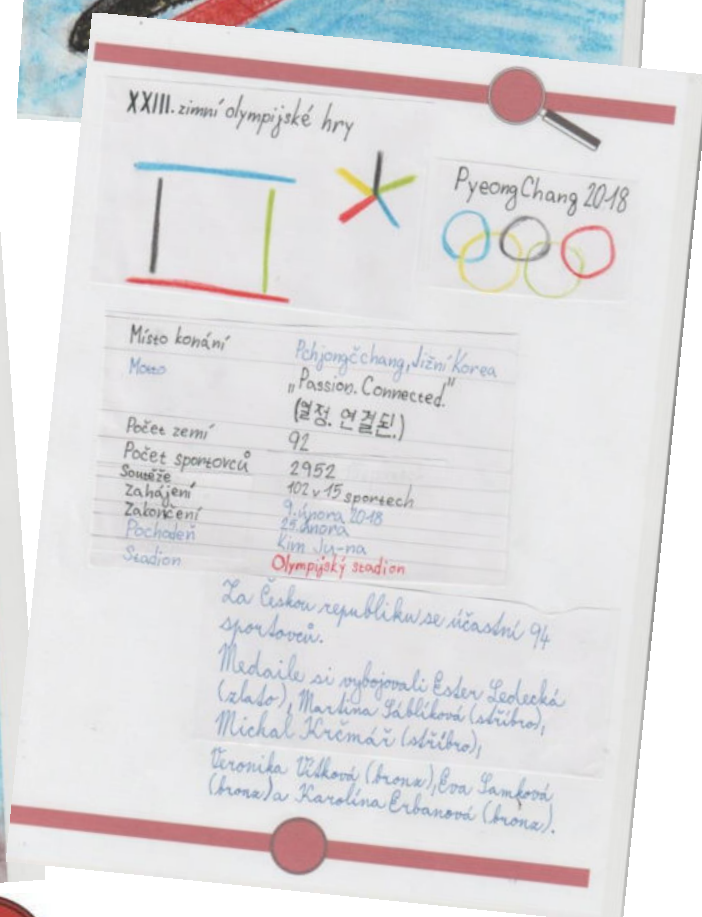 XXIII. zimní olympijské hry
PyeongChang 2018
Místo konání Pchjongčchang, Jižní Korea
Motto „Passion. Connected.”
(열정. 연결된.)
Počet zemí 92
Počet sportovců 2952
Soutěže 102 v 15 sportech
Zahájení 9. února 2018
Zakončení 25. února
Pochodeň Kim Ju-na
Stadion Olympijský stadion
Za Českou republiku se účastní 94
sportovců.
Medaile si vybojovali Ester Ledecká
(zlato), Martina Sáblíková (stříbro),
Michal Krčmář (stříbro),
Veronika Vítková (bronz), Eva Samková
(bronz) a Karolína Erbanová (bronz).